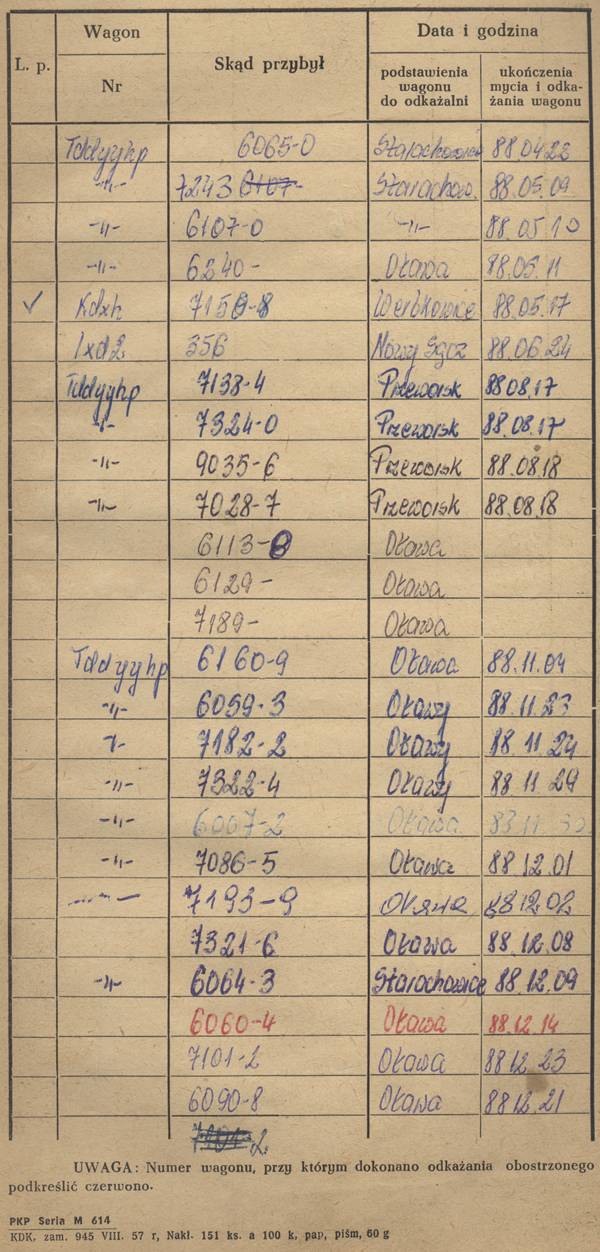 Wagon Data i godzina
L. p. Nr Skąd przybył podstawienia wagonu do odkażalni ukończenia mycia i odkażania wagonu
Tddyyhp 6065-0 Starachowice 88.04.22
-"- 7243 6107- Starachow. 88.05.09
-"- 6107-0 -"- 88.05.10
-"- 6240- Oława 88.05.11
✓ Kdxh 7150-8 Werbkowice 88.05.17
1xd2. 356 Nowy Sącz 88.06.24
Tddyyhp 7138-4 Przeworsk 88 08.17
-"- 7324-0 Przeworsk 88.08.17
-"- 9035-6 Przeworsk 88.08.18
-"- 7028-7 Przeworsk 88.08.18
6113- Oława
6129- Oława
7189- Oława
Tddyyhp 6160-9 Oława 88.11.04
-"- 6059-3 Oławy 88.11.23
-"- 7182-2 Oławy 88 11 24
-"- 7322-4 Oławy 88 11 29
-"- 6067-2 Oława 88 11 30
-"- 7086-5 Oława 88 12.01
7193-9 88 12.02
7321-6 Oława 88.12.08
-"- 6064-3 Starachowice 88.12.09
6060-4 Oława 88.12.14
7101-2 Oława 88 12 23
6090-8 Oława 88 12 21
7101-2
UWAGA: Numer wagonu, przy którym dokonano odkażania obostrzonego
podkreślić czerwono.
PKP Seria M 614
KDK. zam. 945 VIII. 57 r, Nakł. 151 ks. a 100 k, pap, piśm, 60 g